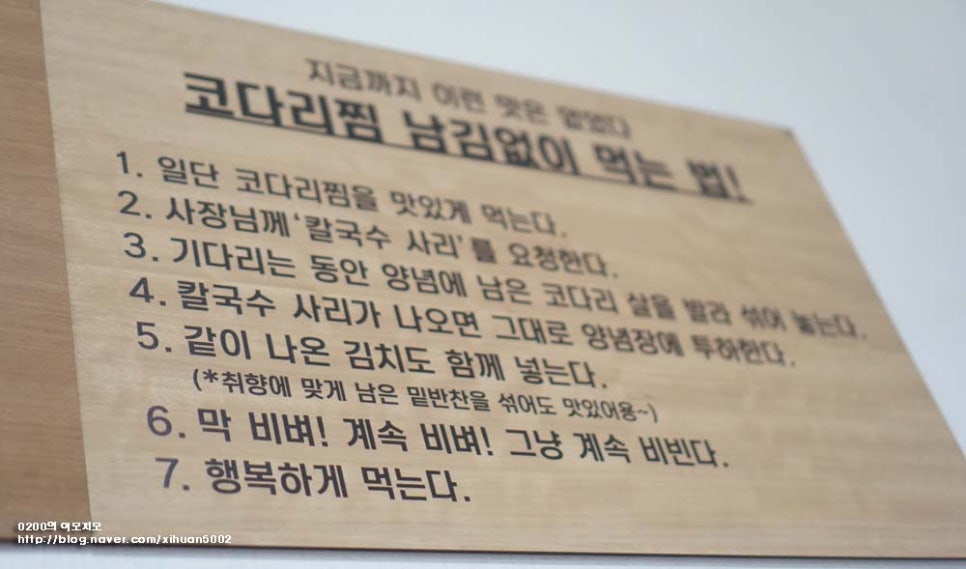 지금까지 이런 맛은 없었다
코다리찜 남김없이 먹는 법!
1. 일단 코다리찜을 맛있게 먹는다.
2. 사장님께 '칼국수 사리'를 요청한다.
3. 기다리는 동안 양념에 남은 코다리 살을 발라 섞어 놓는다.
4. 칼국수 사리가 나오면 그대로 양념장에 투하한다.
5. 같이 나온 김치도 함께 넣는다.
(*취향에 맞게 남은 밑반찬을 섞어도 맛있어용~)
6. 막 비벼! 계속 비벼! 그냥 계속 비빈다.
7. 행복하게 먹는다.
0200의 이모저모
http://blog.naver.com/xihuan5002